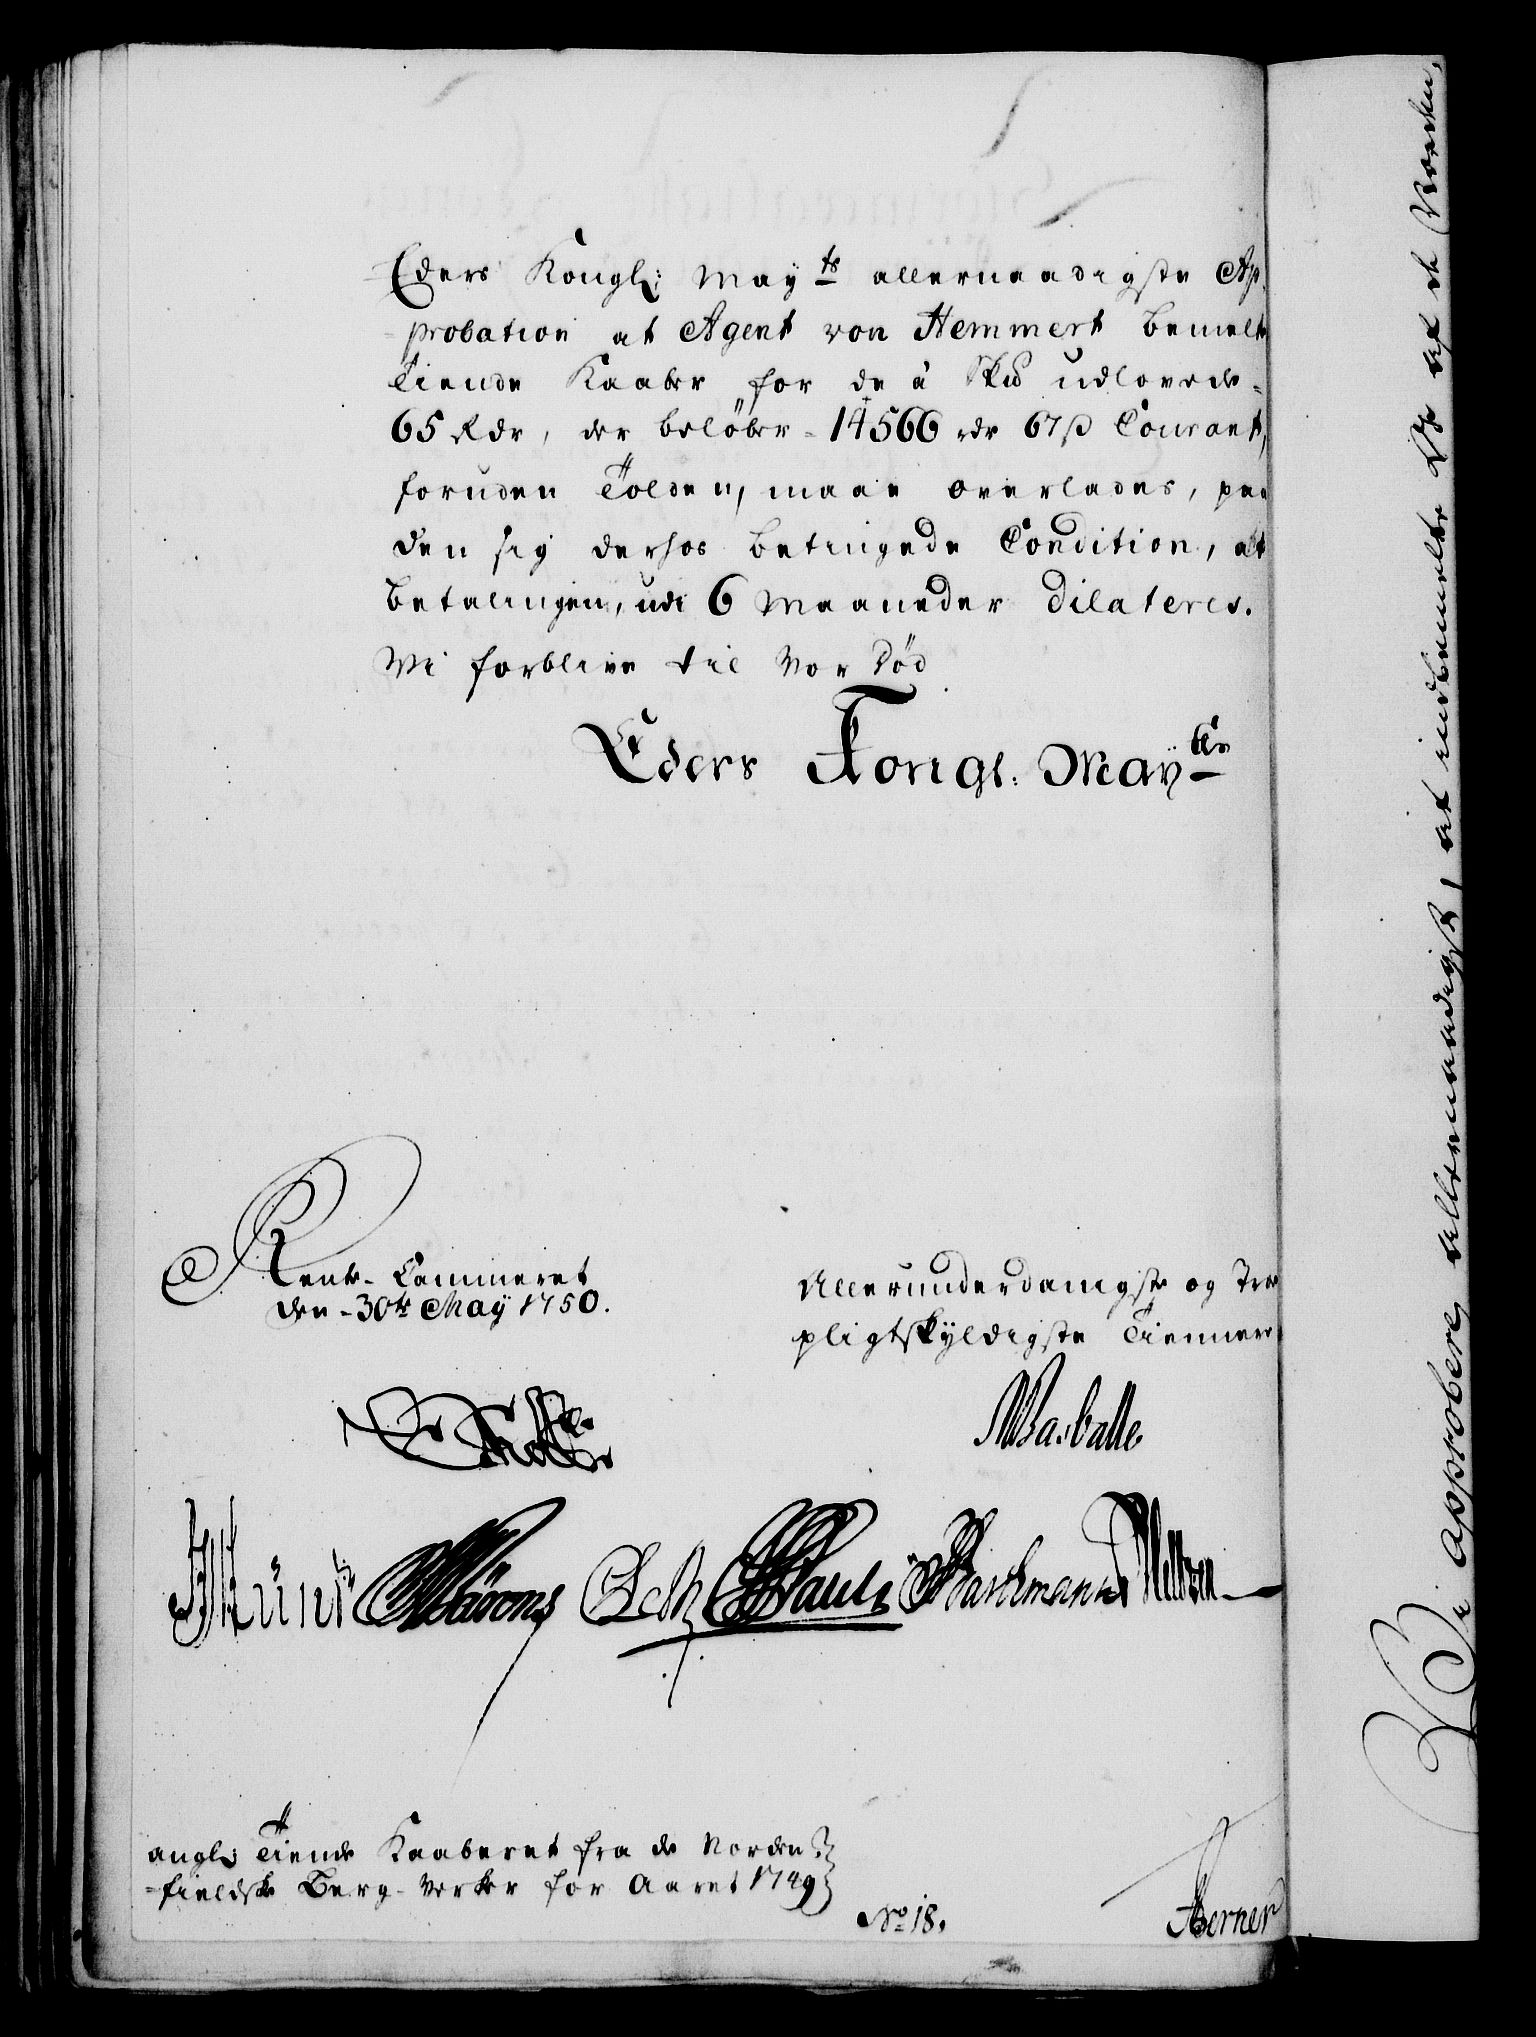 Eders Kongl: May.ts allernaadigste Ap-
=probation at Agent von Hemmert bemelte
Tiende Kaaber for de á Skd udlovede
65 Rdr, der beløber 14566 rdr 67 ß Courant,
foruden Tolden, maae overlades, paa
den sig derhos betingede Condition, at
betalingen, udi 6 Maaneder dilateres.
Vi forblive til vor Død
Eders Kongl. May.ts
Rente-Cammeret
den 30te May 1750.
Allerunderdanigste og Troe
pligtskyldigste Tiennere
Barthmann
angl: Tiende Kaaberet fra de Norden-
=fieldske Berg-Verker for Aaret 1749
No 18.
Berner
Vi approbere allernaadigst, at indbemelte De af de Norden,